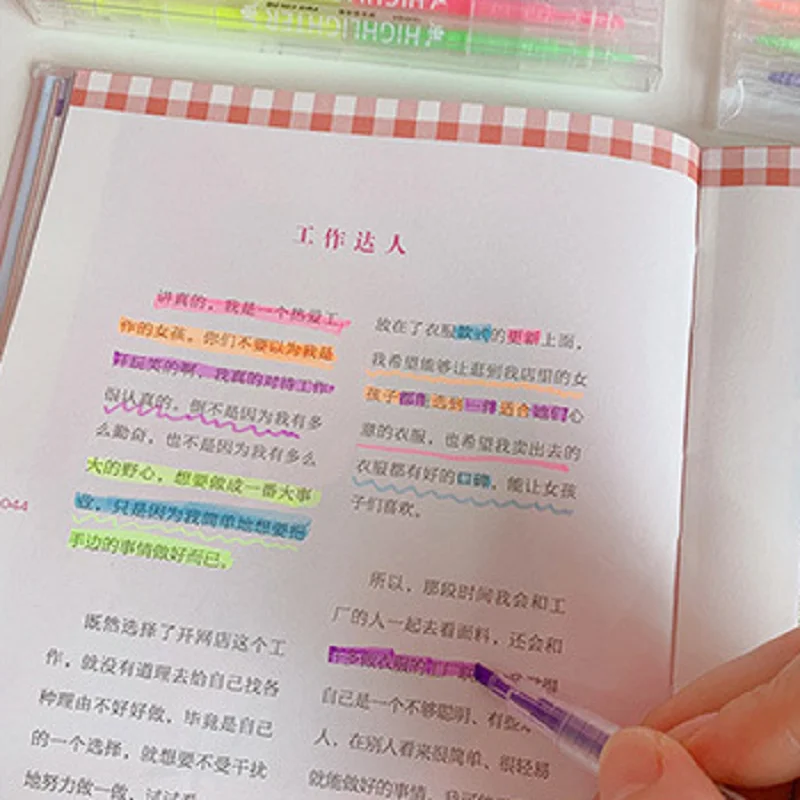 HIGHLIGHTER
工作达人
讲真的，我是一个热爱工
作的女孩，你们不要以为我是
开玩笑的啊，我真的对待工作
很认真的，倒不是因为我有多
么勤奋，也不是因为我有多么
大的野心，想要做成一番大事
业，只是因为我简单地想要把
手边的事情做好而已。
044
既然选择了开网店这个工
作，就没有道理去给自己找各
种理由不好好做，毕竟是自己
的一个选择，就想要不受干扰
地努力做一做，试试看
放在了衣服款式的更新上面，
我希望能够让逛到我店里的女
孩子都能选到一件适合她们心
意的衣服，也希望我卖出去的
衣服都有好的口碑，能让女孩
子们喜欢。
所以，那段时间我会和工
厂的人一起去看面料，还会和
做衣服的
自己是一个不够聪明、有些
人，在别人看来很简单、很轻易
就能做好的事情，我可能